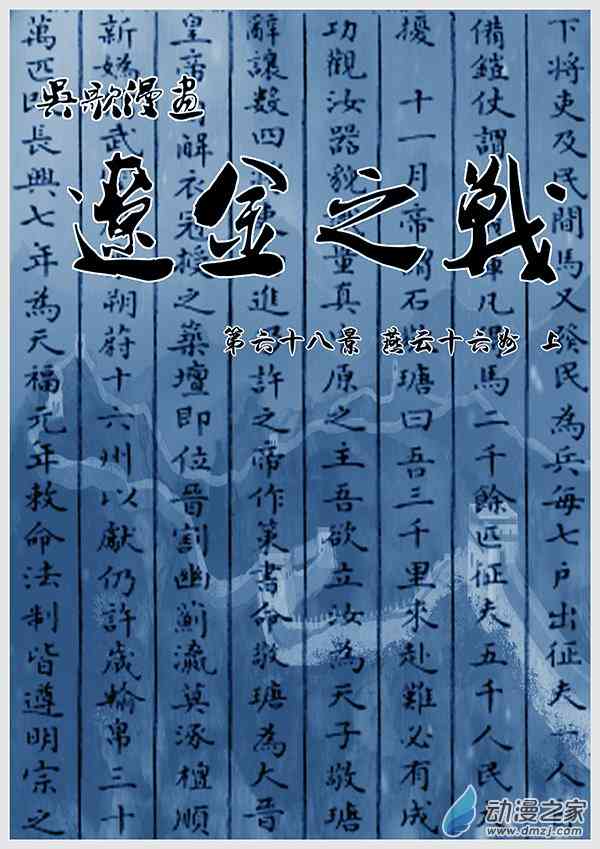 吳歌漫畫
遼金之戰
第六十八景 燕云十六州 上
下將吏及民間馬又發民為兵每七戶出征夫一人
備鎧仗謂 凡 馬二千餘匹征夫五千人民
擾 十一月帝謂石 瑭曰吾三千里來赴難必有成
功觀汝器貌 量真 原之主吾欲立汝為天子敬瑭
辭讓數四 進 許之帝作策書命敬瑭為大晉
皇帝解衣冠授之築壇即位晉割幽薊瀛莫涿檀順
新媯 武 朔蔚十六州以獻仍許歲輸帛三十
萬匹 長興七年為天福元年敕命法制皆遵明宗之
动漫之家
www.dmzj.com